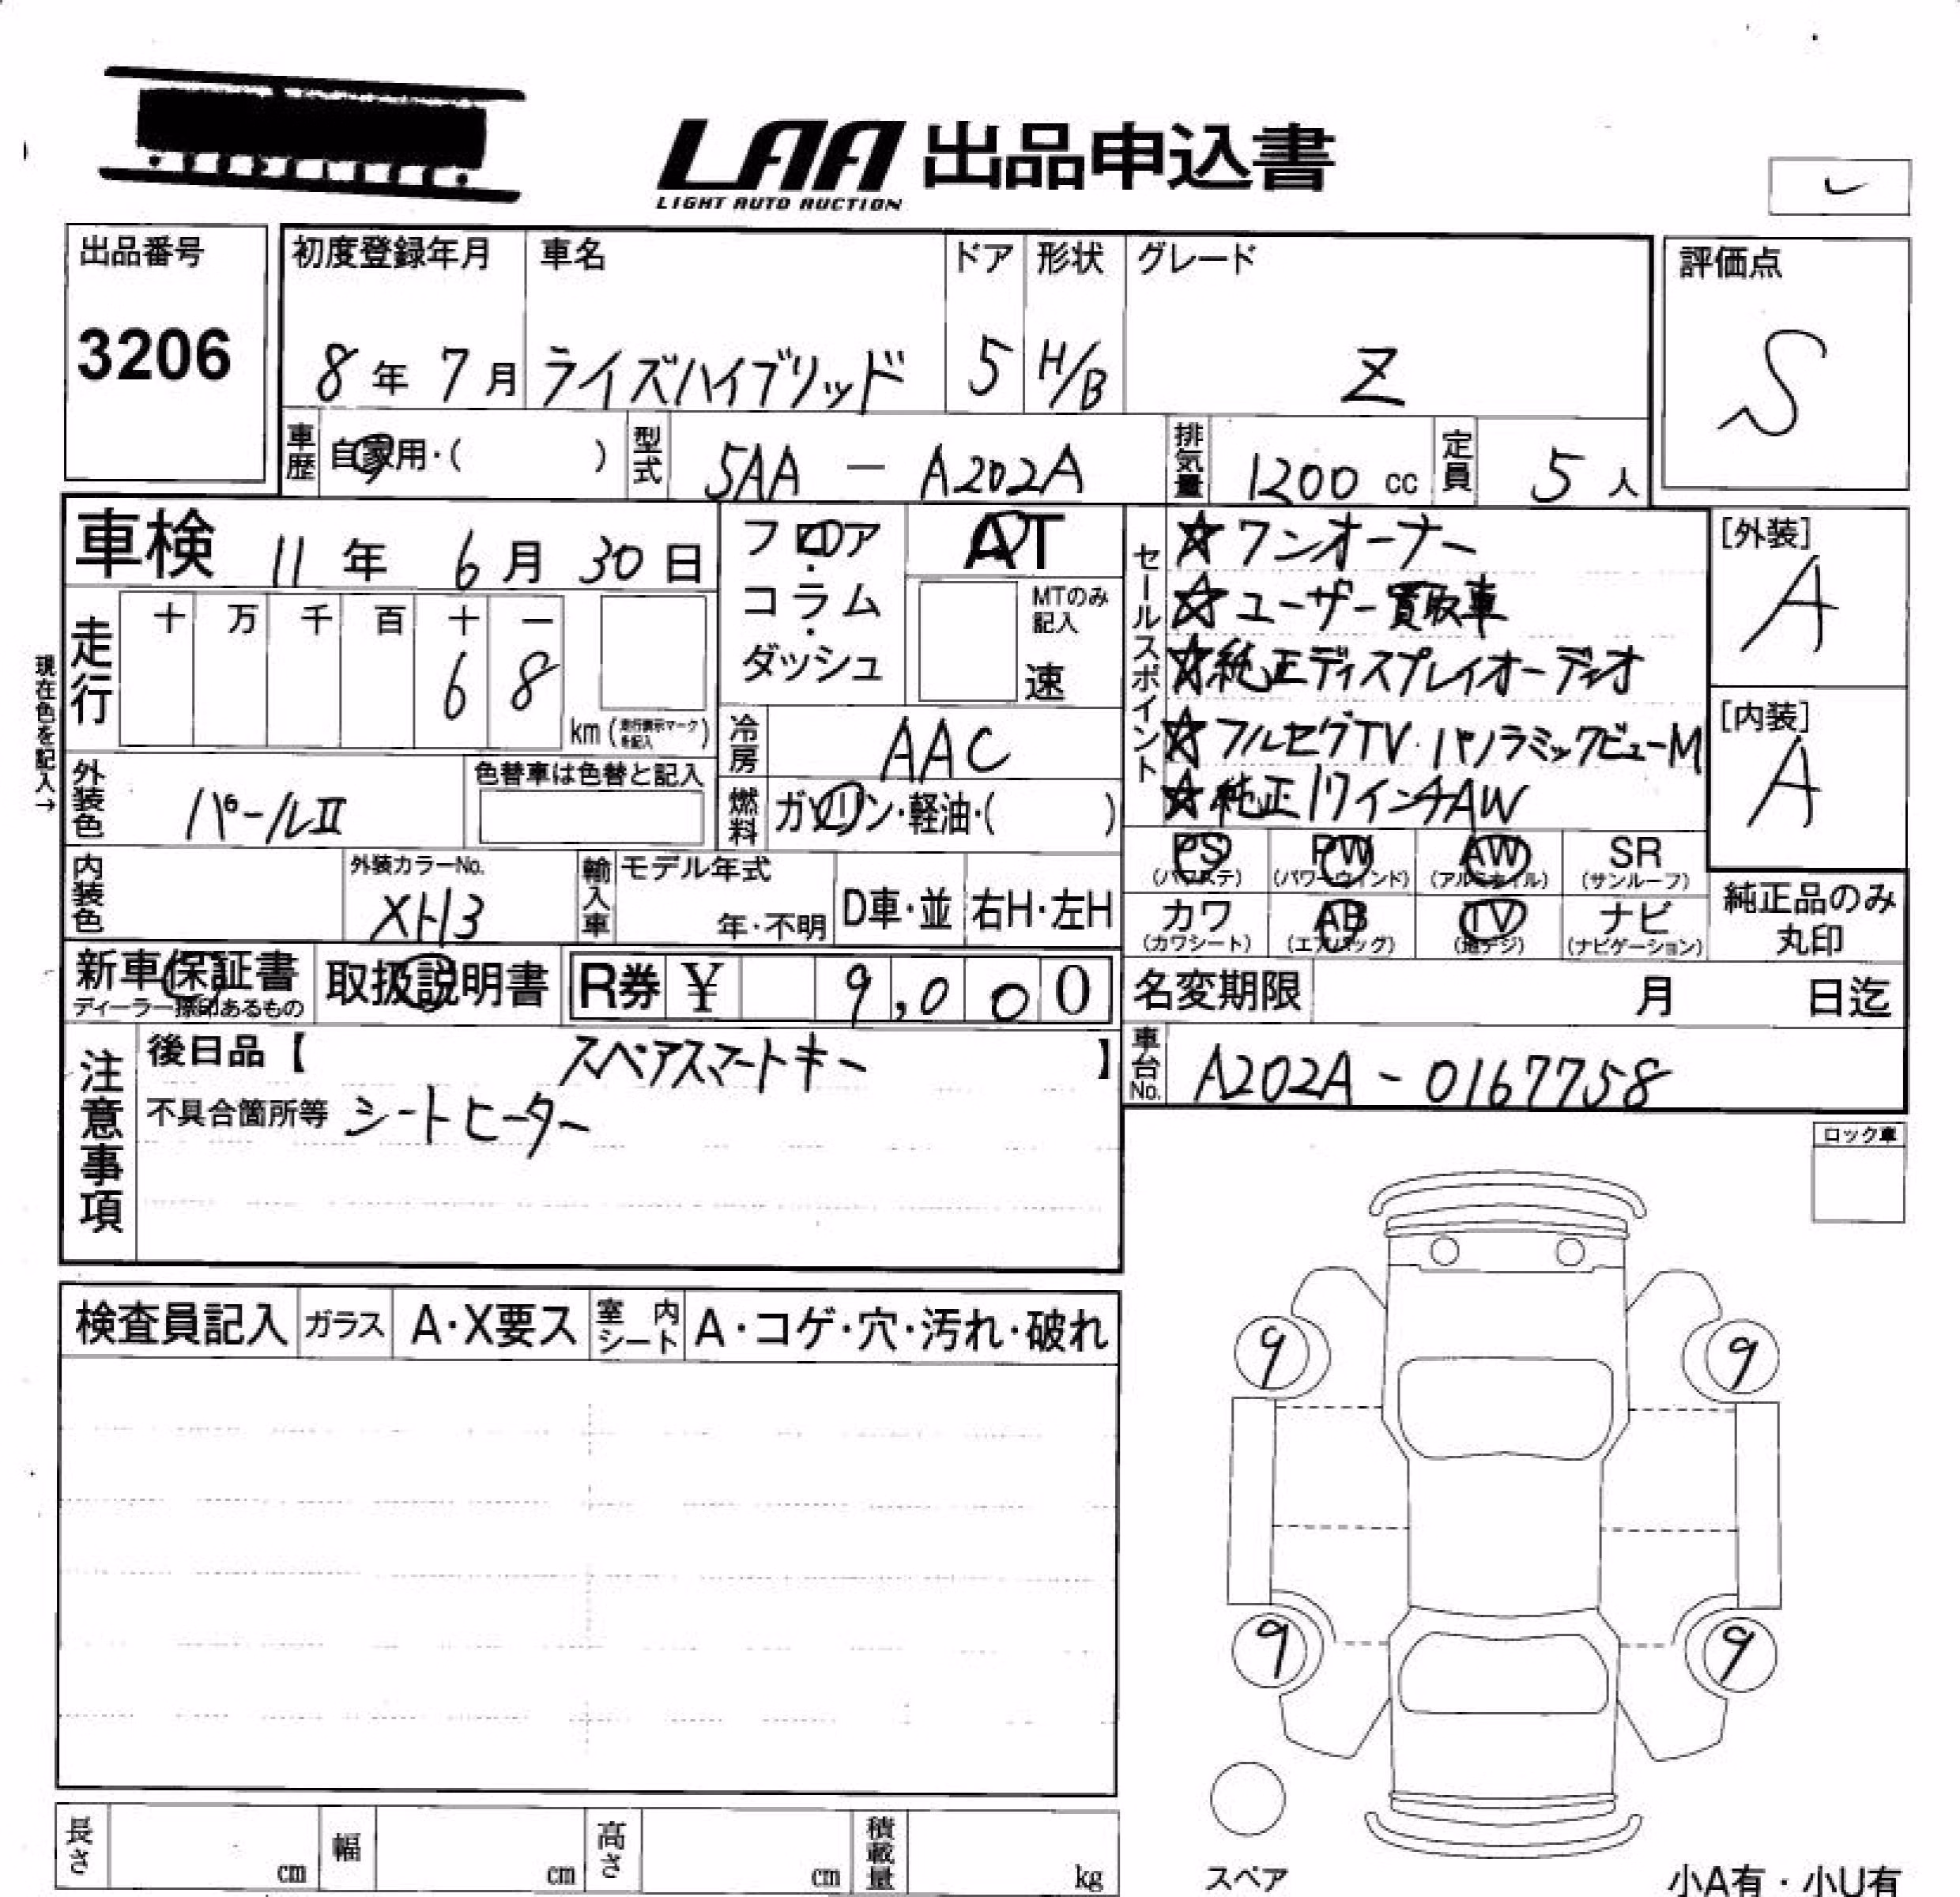 LAA 出品申込書
LIGHT AUTO AUCTION
出品番号
3206
初度登録年月
8年 7月
車名
ライズハイブリッド
ドア
5
形状
H/B
グレード
Z
評価点
S
車歴 自家用・( )
型式 5AA － A202A
排気量 1200 cc
定員 5 人
車検 11年 6月 30日
フロア・コラム・ダッシュ
AT
MTのみ記入
速
セールスポイント
☆ワンオーナー
☆ユーザー買取車
☆純正ディスプレイオーディオ
☆フルセグTV・パノラミックビューM
☆純正17インチAW
[外装]
A
[内装]
A
現在色を記入→
走行
十 万 千 百 十 一
6 8
km (走行表示マークを記入)
冷房 AAC
外装色 パールII
色替車は色替と記入
燃料 ガソリン・軽油・( )
内装色
外装カラーNo.
XH3
輸入車
モデル年式
年・不明
D車・並
右H・左H
PS (パワステ)
PW (パワーウィンド)
AW (アルミホイル)
SR (サンルーフ)
カワ (カワシート)
AB (エアバッグ)
TV (地デジ)
ナビ (ナビゲーション)
純正品のみ丸印
新車保証書
ディーラー捺印あるもの
取扱説明書
R券 ¥ 9,000
名変期限 月 日迄
注意事項
後日品【 スペアスマートキー 】
不具合箇所等 シートヒーター
車台No. A202A - 0167758
ロック車
検査員記入
ガラス A・X要ス
室内シート A・コゲ・穴・汚れ・破れ
9 9
9 9
スペア
小A有・小U有
長さ cm
幅 cm
高さ cm
積載量 kg